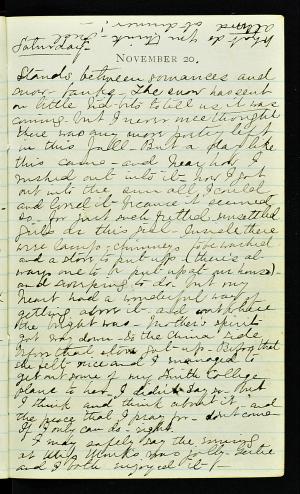 What do
you think - Jule
at dinner?
Saturday -
NOVEMBER 20.
Stands between romances and
snow banks - The snow has sent
on little tid-bits to tell us it was
coming - but I never once thought
there was any more poetry left
in this fall! But a day like
this came - and
I rushed out into it - how I got
out into the sun all I could
and loved it - because it seemed
so - for just such fretted, unsettled
girls as this girl - Inside there
were lamp - chimneys to be washed
and a stove to put up (there's al-
ways one to be put up at our house)
and sweeping to do - but my
heart had a wonderful way of
getting above it - and out where
the bright was - Mother's spirit
got way down - to the China side
before that stove got up - Before that
she felt once and I managed to
get out some of my Smith College
plans to her - I didn't say - But
I think and think about it and
the peace that I pray for - don't come
If I only can do - right.
I may safely say the evening
at was jolly - Gertie
and I both enjoyed it -